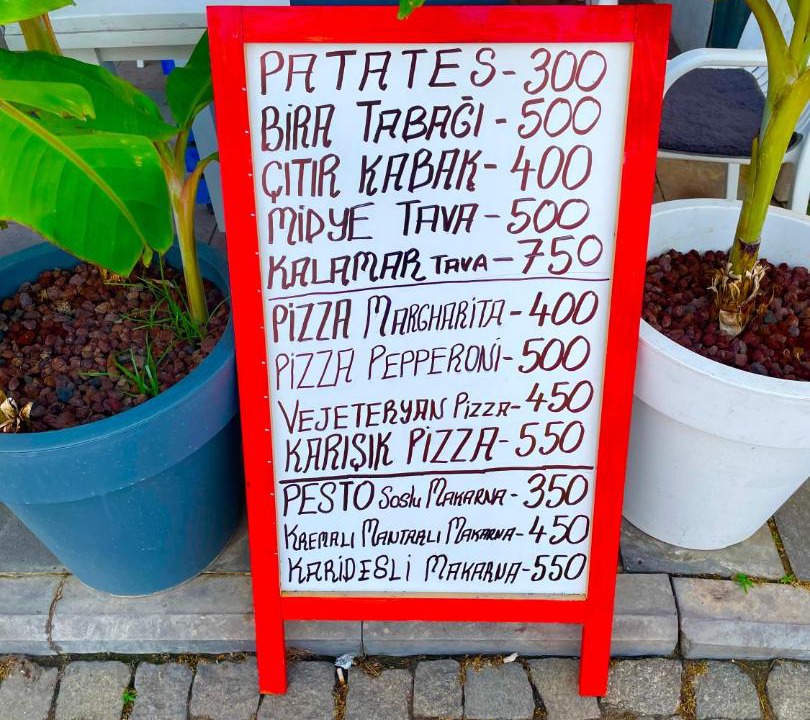 PATATES - 300
BİRA TABAĞI - 500
ÇITIR KABAK - 400
MİDYE TAVA - 500
KALAMAR TAVA - 750
PİZZA MARGHARİTA - 400
PİZZA PEPPERONİ - 500
VEJETERYAN PİZZA - 450
KARIŞIK PİZZA - 550
PESTO Soslu MAKARNA - 350
KREMALI MANTRALI MAKARNA - 450
KARİDESLİ MAKARNA - 550